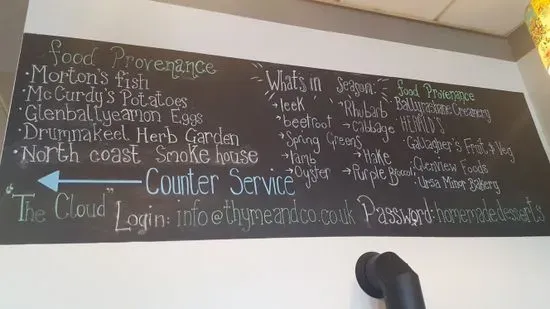 food Provenance
· Morton's fish
· McCurdy's Potatoes
· Glenballyeamon Eggs
· Drumnakeel Herb Garden
· North coast Smoke house
What's in season:
→ leek
→ beetroot
→ Spring Greens
→ lamb
→ Oyster
→ Rhubarb
→ cabbage
→ Hake
→ Purple Broccoli
food Provenance
· Ballyrashane Creamery
· Gallagher's Fruit & Veg
· Glenview Foods
· Ursa Minor Bakery
← Counter Service
"The Cloud" Login: info@thymeandco.co.uk Password: homemadedesserts